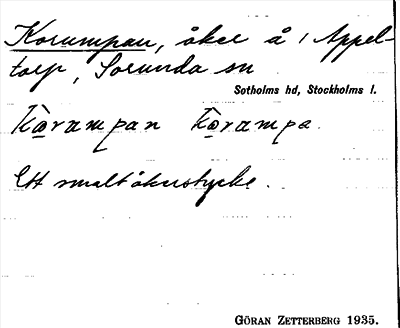 Korumpan, åker å Appel-
torp, Sorunda sn
Sotholms hd, Stockholms l.
kòrumpan kòrumpa.
Ett smalt åkerstycke.
GÖRAN ZETTERBERG 1935.